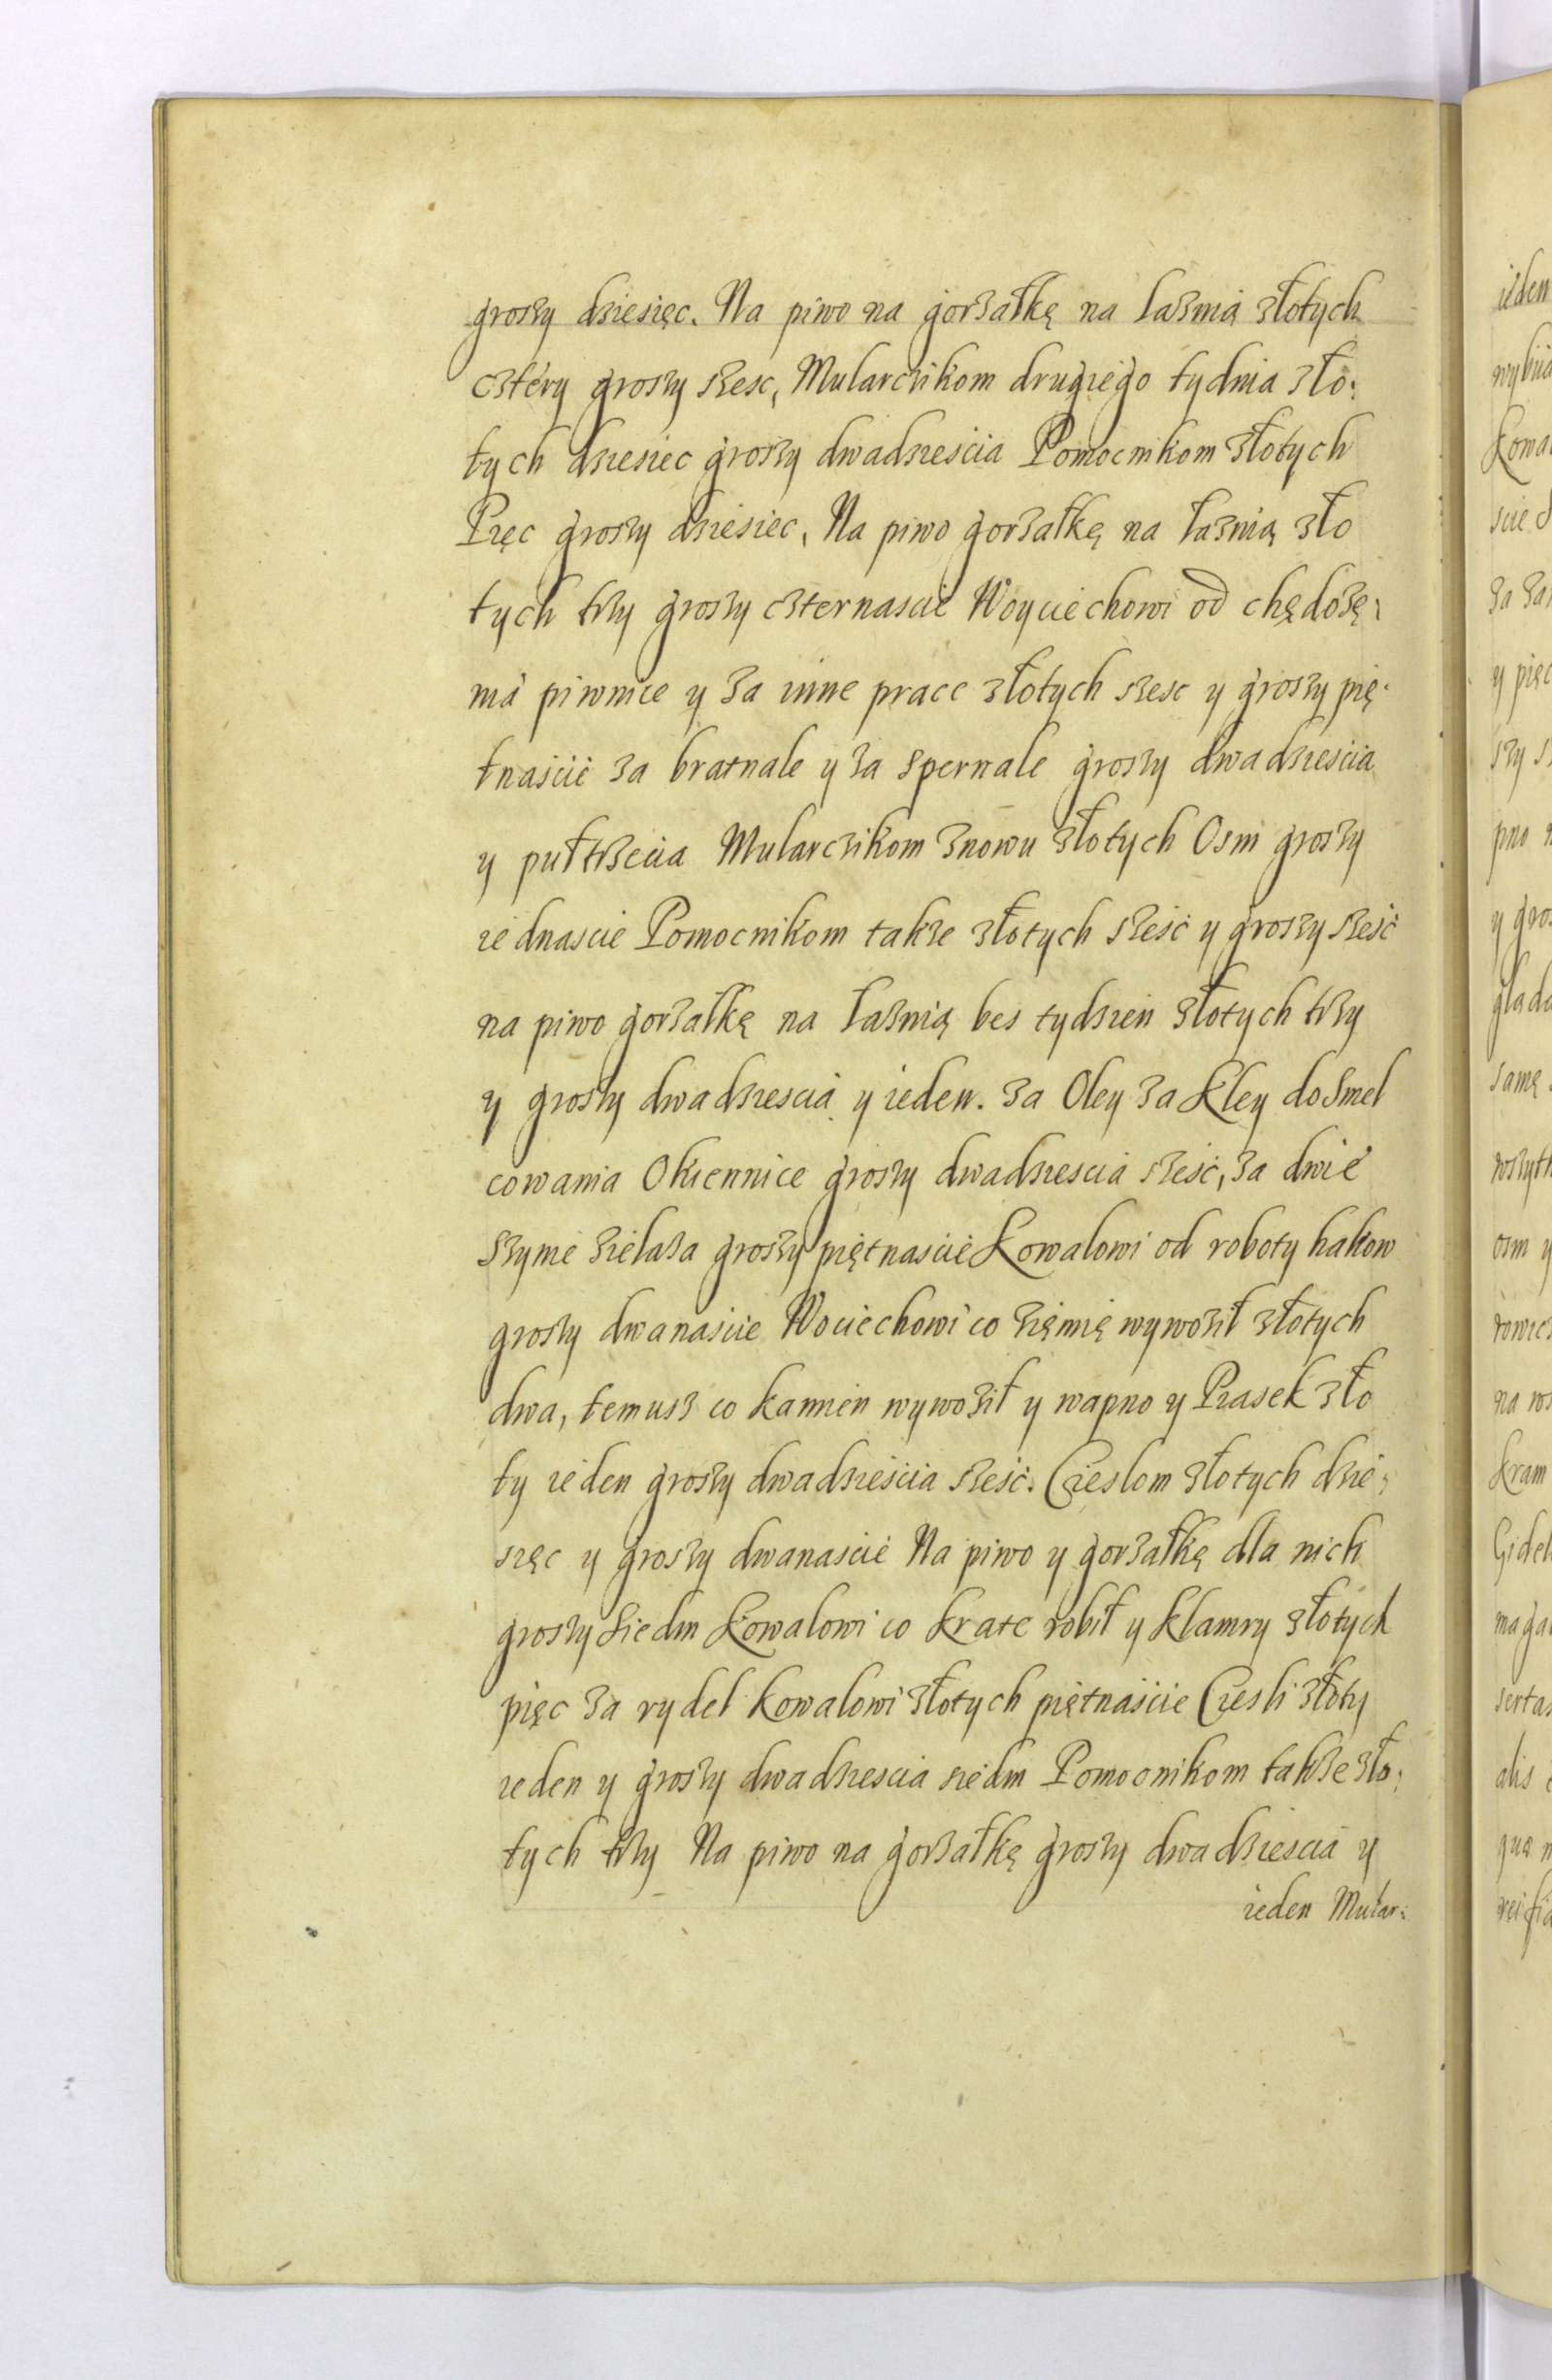 groszy dziesięc. Na piwo na gorzałkę na łaznią złotych
cztery groszy szesc, Mularczikom drugiego tydnia zło:
tych dziesiec groszy dwadziescia Pomocnikom złotych
Pięc groszy dziesiec, Na piwo gorzałkę na łaznią zło
tych trzy groszy czternascie Woyciechowi od chędozę:
nia piwnice y za inne prace złotych szesc y groszy pię:
tnascie za bratnale y za spernale groszy dwadziescia
y pułtrzecia Mularczikom znowu złotych Osm groszy
iednascie Pomocnikom takze złotych sześć y groszy sześć
na piwo gorzałkę na łaznią bes tydzien złotych trzy
y groszy dwadziescia y ieden. za Oley za Kley do smel
cowania Okiennice groszy dwadziescia sześć, za dwie
szynie zielaza groszy piętnascie Kowalowi od roboty hakow
groszy dwanascie Wociechowi co zięmię wywoził złotych
dwa, temusz co kamien wywoził y wapno y Piasek zło
ty ieden groszy dwadzieścia sześć. Cieslom złotych dzie:
sięc y groszy dwanascie Na piwo y gorzałkę dla nich
groszy siedm Kowalowi co krate robił y klamry złotych
pięc za rydel kowalowi złotych piętnaście Ciesli złoty
ieden y groszy dwadziescia siedm Pomocnikom takze zło:
tych trzy Na piwo na gorzałkę groszy dwadziescia y
ieden Mular: